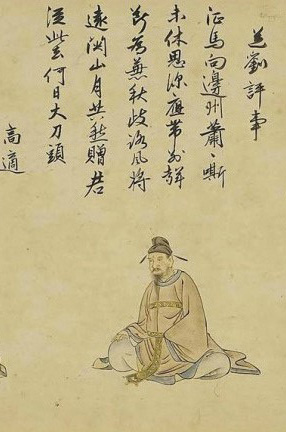 送劉評事
征馬向邊州蕭々嘶
未休思深應帯別聲
断為兼秋岐路風将
遠関山月共愁贈君
従此去何日大刀頭
高適